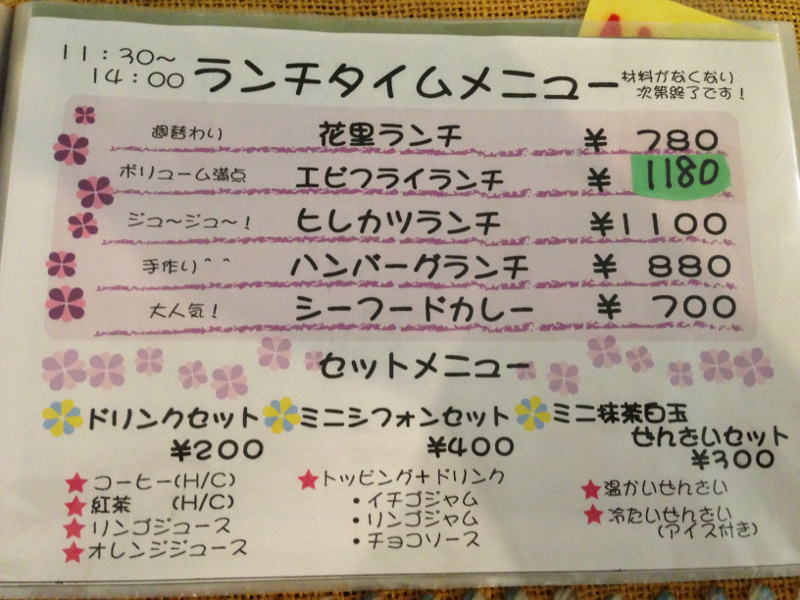 11:30〜
14:00
ランチタイムメニュー
材料がなくなり
次第終了です!
週替わり 花里ランチ ¥ 780
ボリューム満点 エビフライランチ ¥ 1180
ジュ〜ジュ〜! ヒレカツランチ ¥1100
手作り^^ ハンバーグランチ ¥ 880
大人気! シーフードカレー ¥ 700
セットメニュー
ドリンクセット
¥200
★コーヒー(H/C)
★紅茶 (H/C)
★リンゴジュース
★オレンジジュース
ミニシフォンセット
¥400
★トッピング+ドリンク
・イチゴジャム
・リンゴジャム
・チョコソース
ミニ抹茶白玉
ぜんざいセット
¥300
★温かいぜんざい
★冷たいぜんざい
(アイス付き)